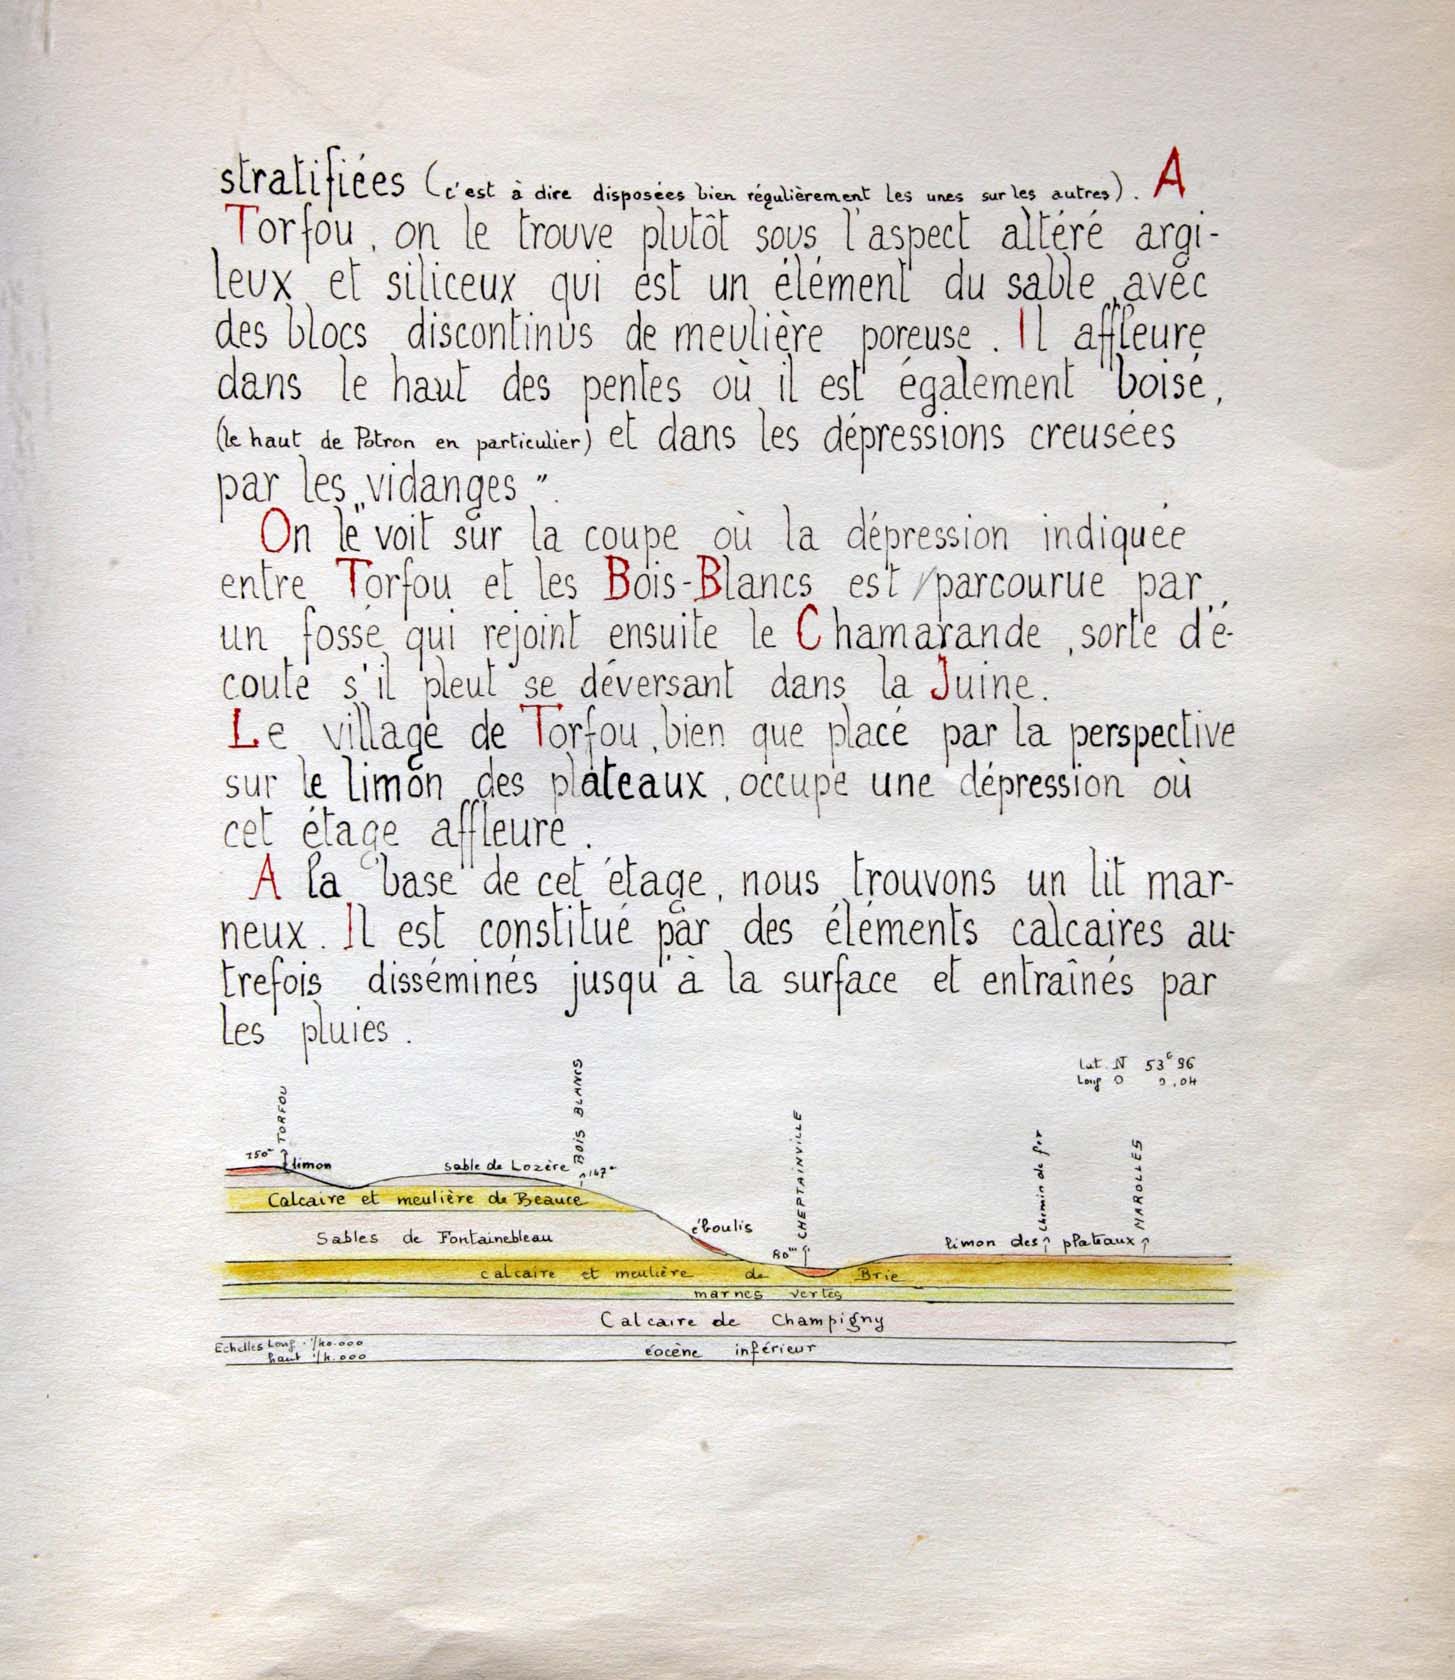 stratifiées (c'est à dire disposées bien régulièrement les unes sur les autres). A
Torfou, on le trouve plutôt sous l'aspect altéré argi-
leux et siliceux qui est un élément du sable, avec
des blocs discontinus de meulière poreuse. Il affleure
dans le haut des pentes où il est également boisé,
(le haut de Potron en particulier) et dans les dépressions creusées
par les „vidanges".
On le voit sur la coupe où la dépression indiquée
entre Torfou et les Bois-Blancs est parcourue par
un fossé qui rejoint ensuite le Chamarande, sorte d'é-
coute s'il pleut se déversant dans la Juine.
Le village de Torfou, bien que placé par la perspective
sur le limon des plateaux, occupe une dépression où
cet étage affleure.
A la base de cet étage, nous trouvons un lit mar-
neux. Il est constitué par des éléments calcaires au-
trefois disséminés jusqu'à la surface et entraînés par
les pluies.
Lat. N 53G 96
Long O 0,04
TORFOU
BOIS BLANCS
CHEPTAINVILLE
Chemin de fer
MAROLLES
150m
limon
sable de Lozère
147m
Calcaire et meulière de Beauce
éboulis
Sables de Fontainebleau
80m
limon des plateaux
calcaire et meulière de Brie
marnes vertes
Calcaire de Champigny
Echelles Long. 1/40.000
haut 1/4.000
éocène inférieur